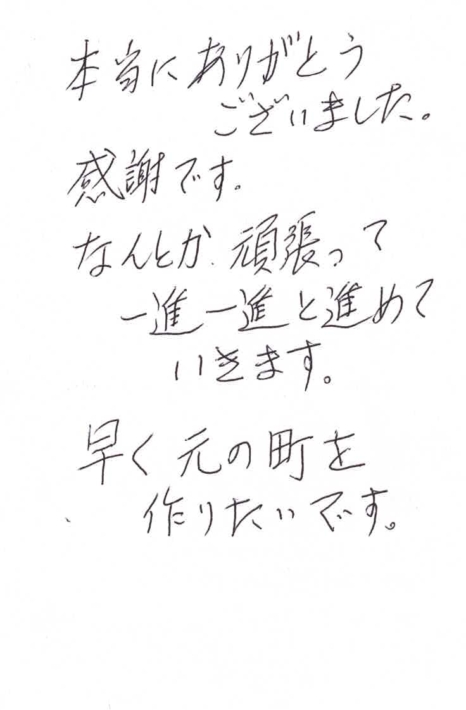 本当にありがとう
ございました。
感謝です。
なんとか、頑張って
一進一進と進めて
いきます。
早く元の町を
作りたいです。